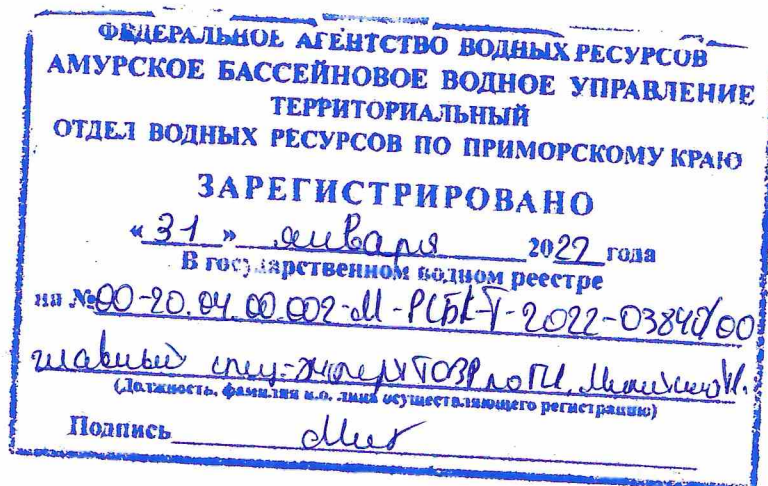 ФЕДЕРАЛЬНОЕ АГЕНТСТВО ВОДНЫХ РЕСУРСОВ
АМУРСКОЕ БАССЕЙНОВОЕ ВОДНОЕ УПРАВЛЕНИЕ
ТЕРРИТОРИАЛЬНЫЙ
ОТДЕЛ ВОДНЫХ РЕСУРСОВ ПО ПРИМОРСКОМУ КРАЮ
ЗАРЕГИСТРИРОВАНО
«31» января 2022 года
В государственном водном реестре
на №00-20.04.00.002-М-РСБК-Т-2022-03840/00
главный спец-эксперт ТОВР по ПК,
(Должность, фамилия и.о. лица осуществляющего регистрацию)
Подпись